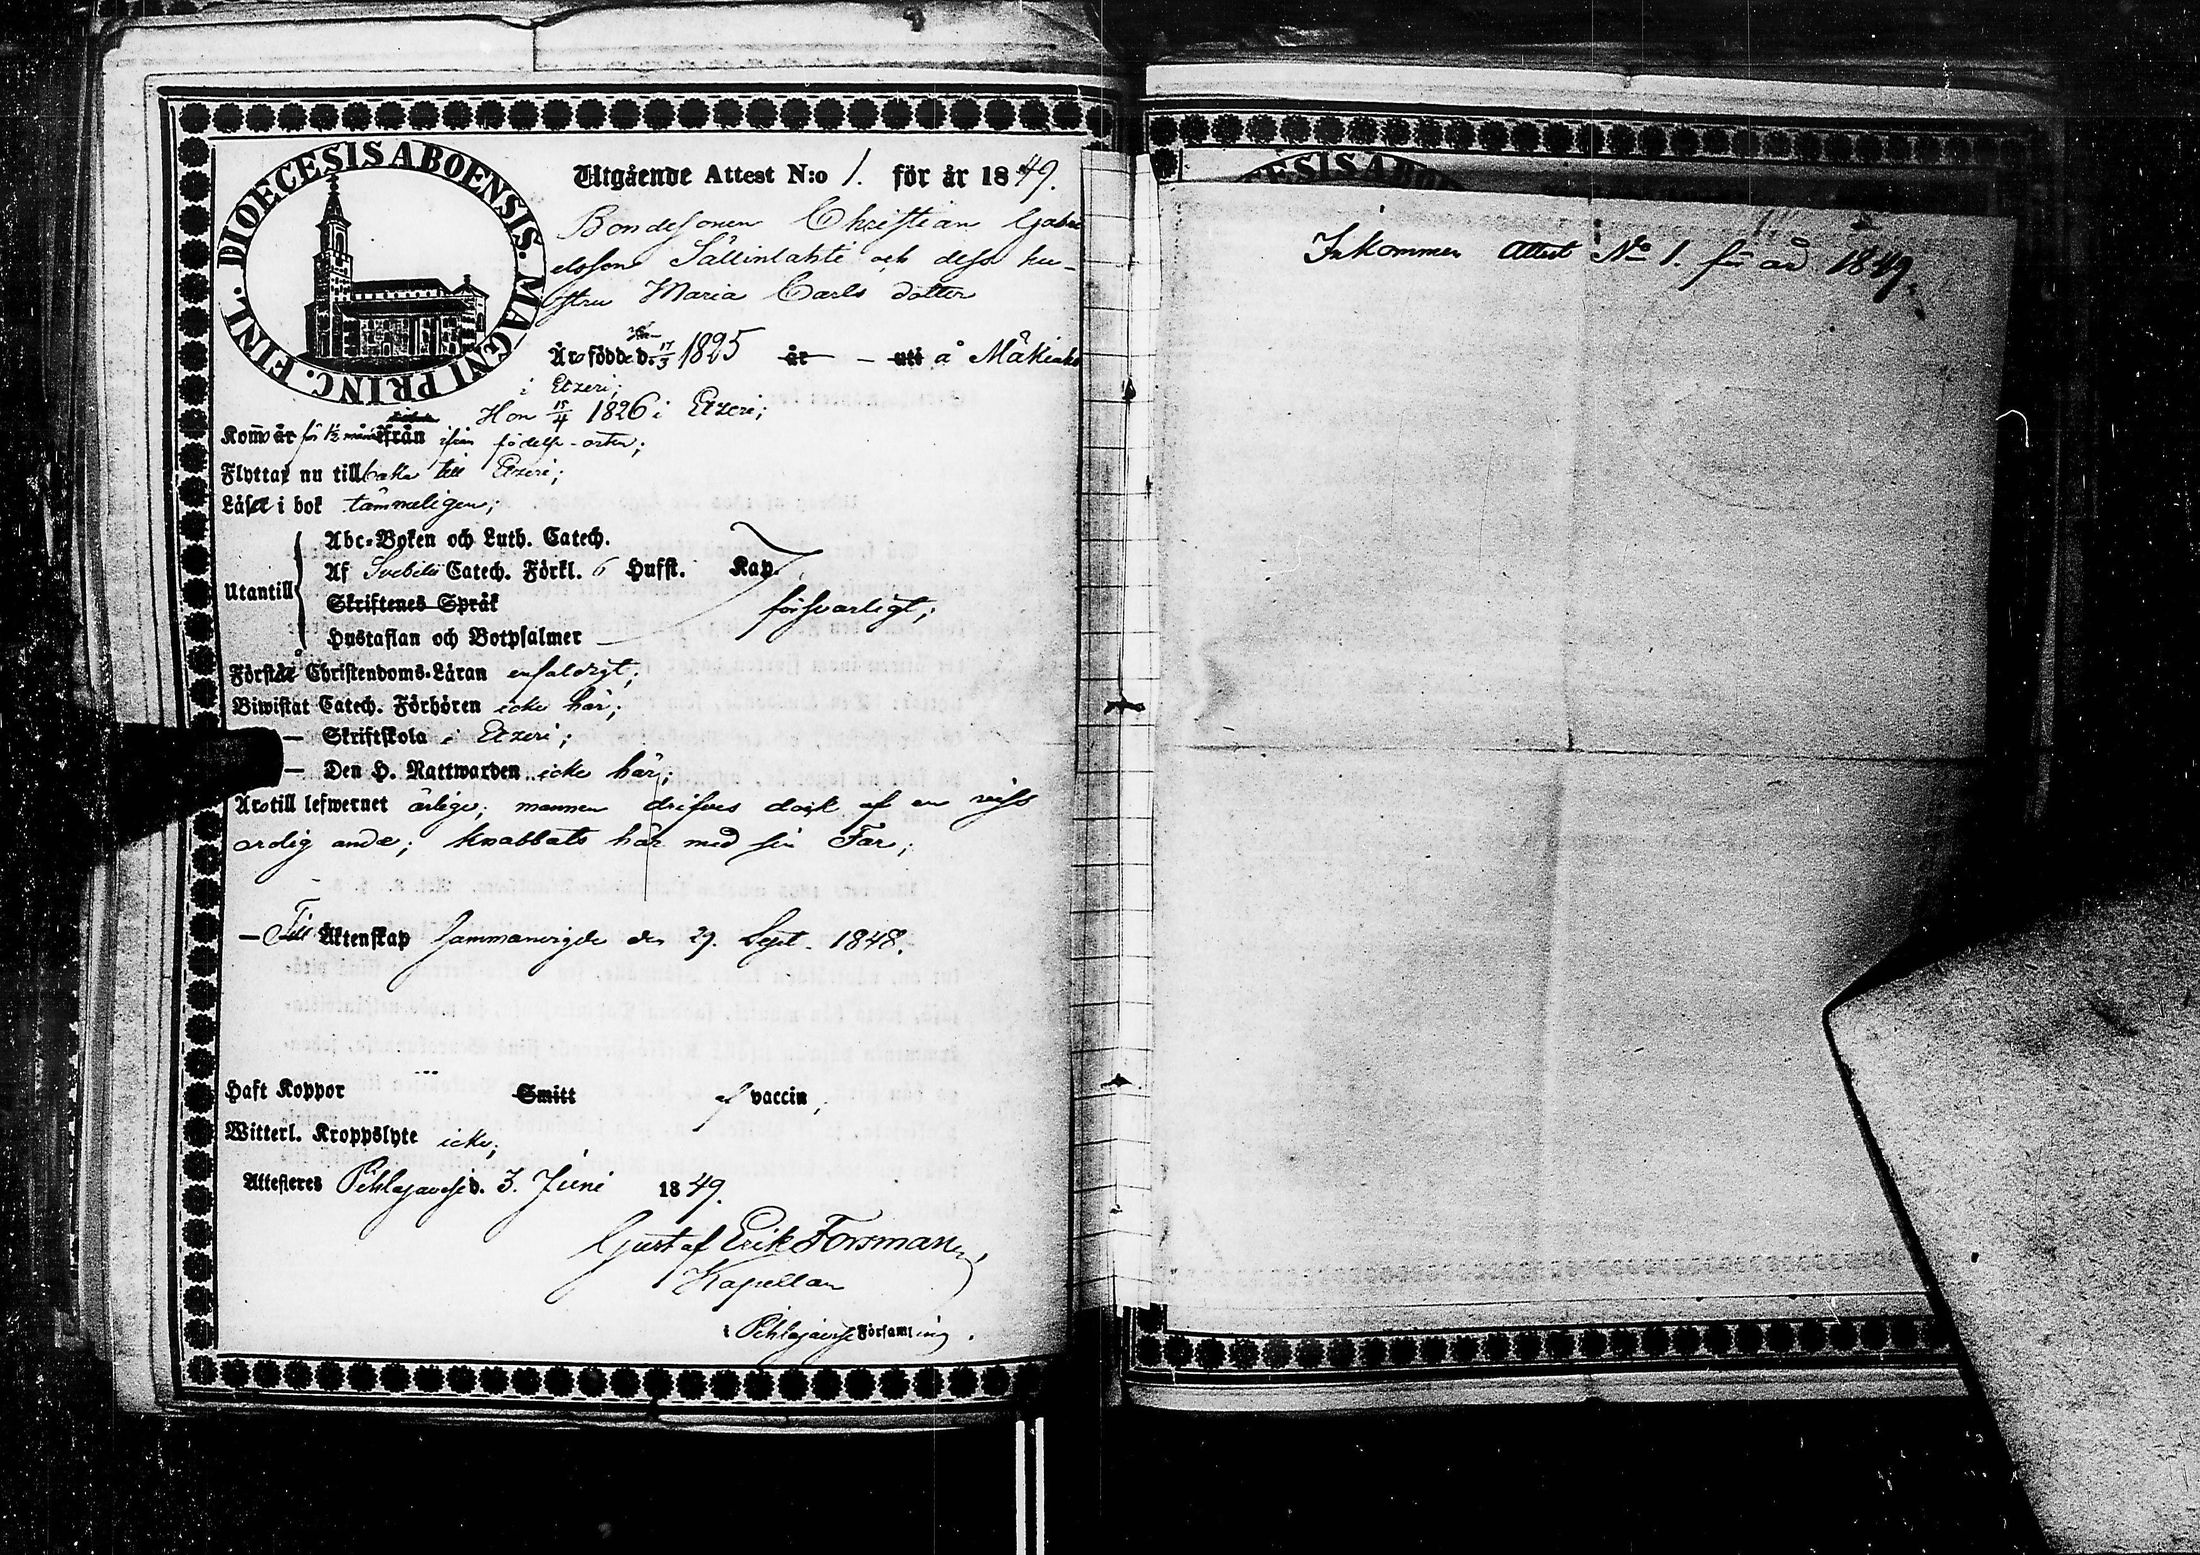 DIOECESIS ABOENSIS. MAGNI PRINC. FINL.
Utgående Attest N:o 1. för år 1849.
Bondesonen Christian Gabri
elsson Sällinlahti och dess hu-
stru Maria Carls dotter
Äro födde d. 17/3 1825 år – uti å Mäkiaho
i Etzeri;
Hon 15/4 1826 i Etzeri;
Kom̄o år för 1½ månad ifrån ifrån födelse-orten;
Flyttar nu tillbaka till Etzeri;
Läser i bok tämmeligen;
Abc-Boken och Luth. Catech.
Af Svebelii Catech. Förkl. 6 Hufst. Kap.
Utantill
Skriftenes Språk försvarligt;
Hustaflan och Botpsalmer
Förstå Christendoms-Läran enfaldigt;
Biwistat Catech. Förhören icke här;
— Skriftskola i Etzeri;
— Den H. Nattwarden icke här;
Äro till lefwernet ärlige; mannen drifves dock af en
ande; knabbats här med sin Far;
— Till Äktenskap sammanvigde den 29. Sept. 1848.
Haft Koppor Smitt af vaccin;
Witterl. Kroppslyte icke;
Attesteres Pihlajavesi d. 3. Juni 1849.
Gustaf Erik Forsman,
Kapellan
i Pihlajavesi Församling.
Inkommen Attest No 1. för år 1849.